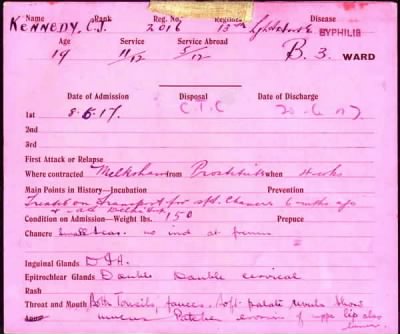 Name Rank Reg. No. Regiment Disease
KENNEDY, C.J. 2016 13th Lgt Horse SYPHILIS
Age Service Service Abroad
19 11/12 5/12 B. 3. WARD
Date of Admission Disposal Date of Discharge
1st 8.5.17. C.T.C
2nd
3rd
First Attack or Relapse
Where contracted Melksham from Prostitute when
Main Points in History—Incubation Prevention
Treated on Transport for spt. Chancre 6 mths ago
Condition on Admission—Weight lbs. 150 Prepuce
Chancre Small scar. no ind at frenum
Inguinal Glands
Epitrochlear Glands Double Double cervical
Rash
Throat and Mouth Both Tonsils, fauces. soft palate uvula show
mucus Patches erosion of upper lip also